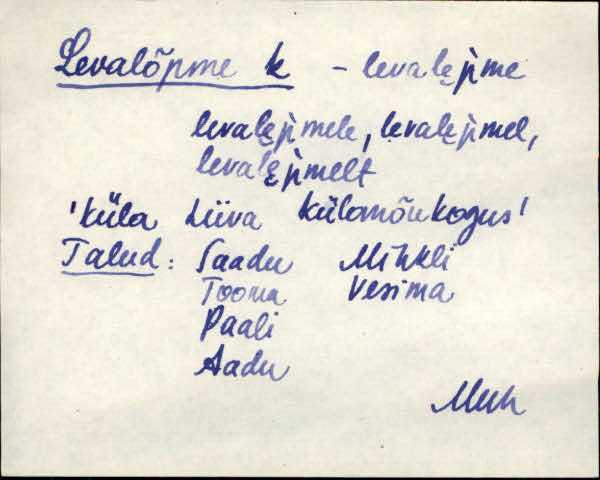 Levalõpme k - levalẹpme
levalẹpmele, levalẹpmel,
levalẹpmelt
'küla Liiva külanõukogus'
Talud: Saadu Mihkli
Tooma Vesima
Paali
Aadu
Muh